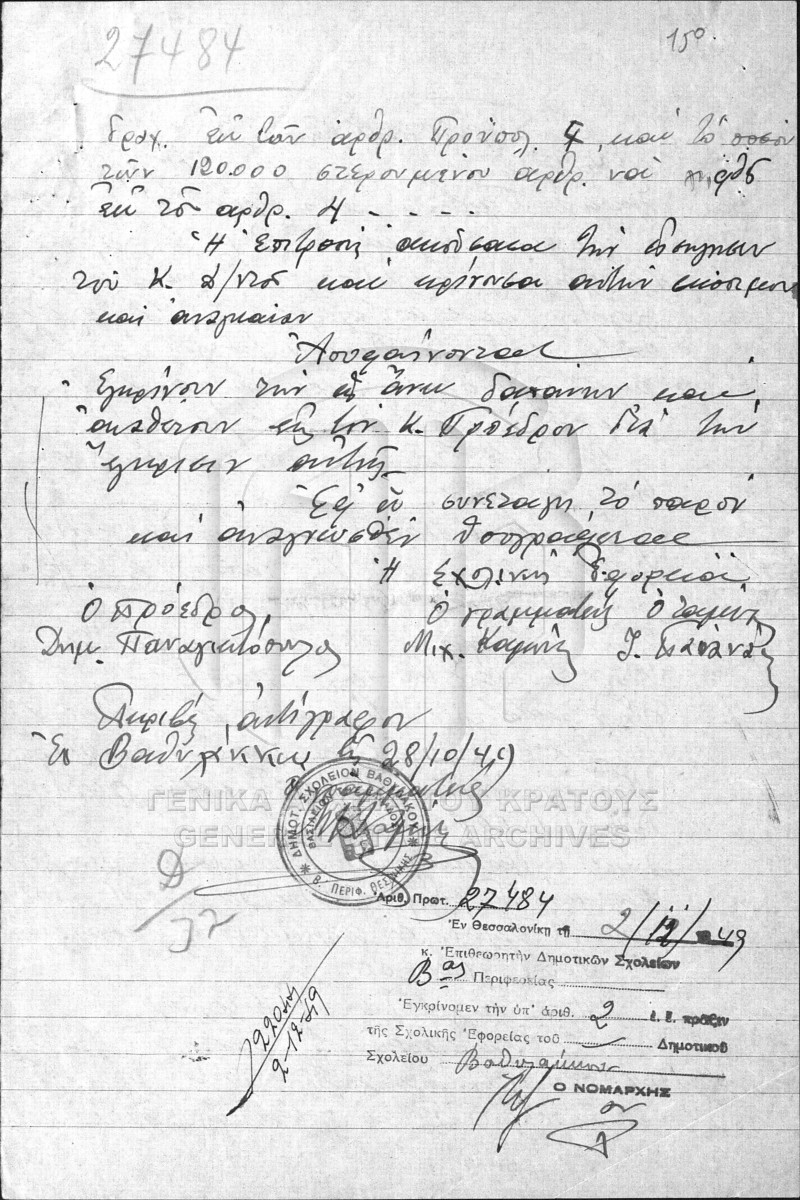 27484
15ο
δραχ. ἐκ τῶν ἀρθρ. Προϋπολ. 4, καὶ τὸ ποσὸν
τῶν 120.000 στερουμένου ἀρθρ. νὰ
ἐκ τοῦ ἀρθρ. 4 - - - -
Ἡ Ἐπιτροπὴ ἀκούσασα τὴν εἰσήγησιν
τοῦ Κ. Δ/ντοῦ καὶ κρίνουσα αὐτὴν
καὶ ἀναγκαίαν
Ἀποφαίνονται
Ἐγκρίνουν τὴν ὡς ἄνω δαπάνην καὶ
ἀναθέτουν εἰς τὸν Κ. Πρόεδρον διὰ τὴν
ἔγκρισιν αὐτῆς
Ἐφ' ᾧ συνετάγη τὸ παρὸν
καὶ ἀναγνωσθὲν ὑπογράφεται
Ἡ Σχολικὴ Ἐφορεία
Ὁ Πρόεδρος Ὁ γραμματεὺς Ὁ ταμίας
Δημ. Παναγιωτόπουλος Μιχ.
Ἀκριβὲς ἀντίγραφον
Ἐν Βαθυλάκκῳ τῇ 28/10/49
Ὁ Γραμματεὺς
ΔΗΜΟΤ. ΣΧΟΛΕΙΟΝ ΒΑΘΥΛΑΚΟΥ
Β΄. ΠΕΡΙΦ. ΘΕΣ/ΝΙΚΗΣ
ΓΕΝΙΚΑ ΑΡΧΕΙΑ ΤΟΥ ΚΡΑΤΟΥΣ
GENERAL STATE ARCHIVES
Δ/32
Ἀριθ. Πρωτ. 27484
Ἐν Θεσσαλονίκῃ τῇ 2/12/49
κ. Ἐπιθεωρητὴν Δημοτικῶν Σχολείων
Βας Περιφερείας
Ἐγκρίνομεν τὴν ὑπ' ἀριθ. 2 ἐ. ἔ. πρᾶξιν
τῆς Σχολικῆς Ἐφορείας τοῦ Δημοτικοῦ
Σχολείου Βαθυλάκκου
Ο ΝΟΜΑΡΧΗΣ
2-12-49